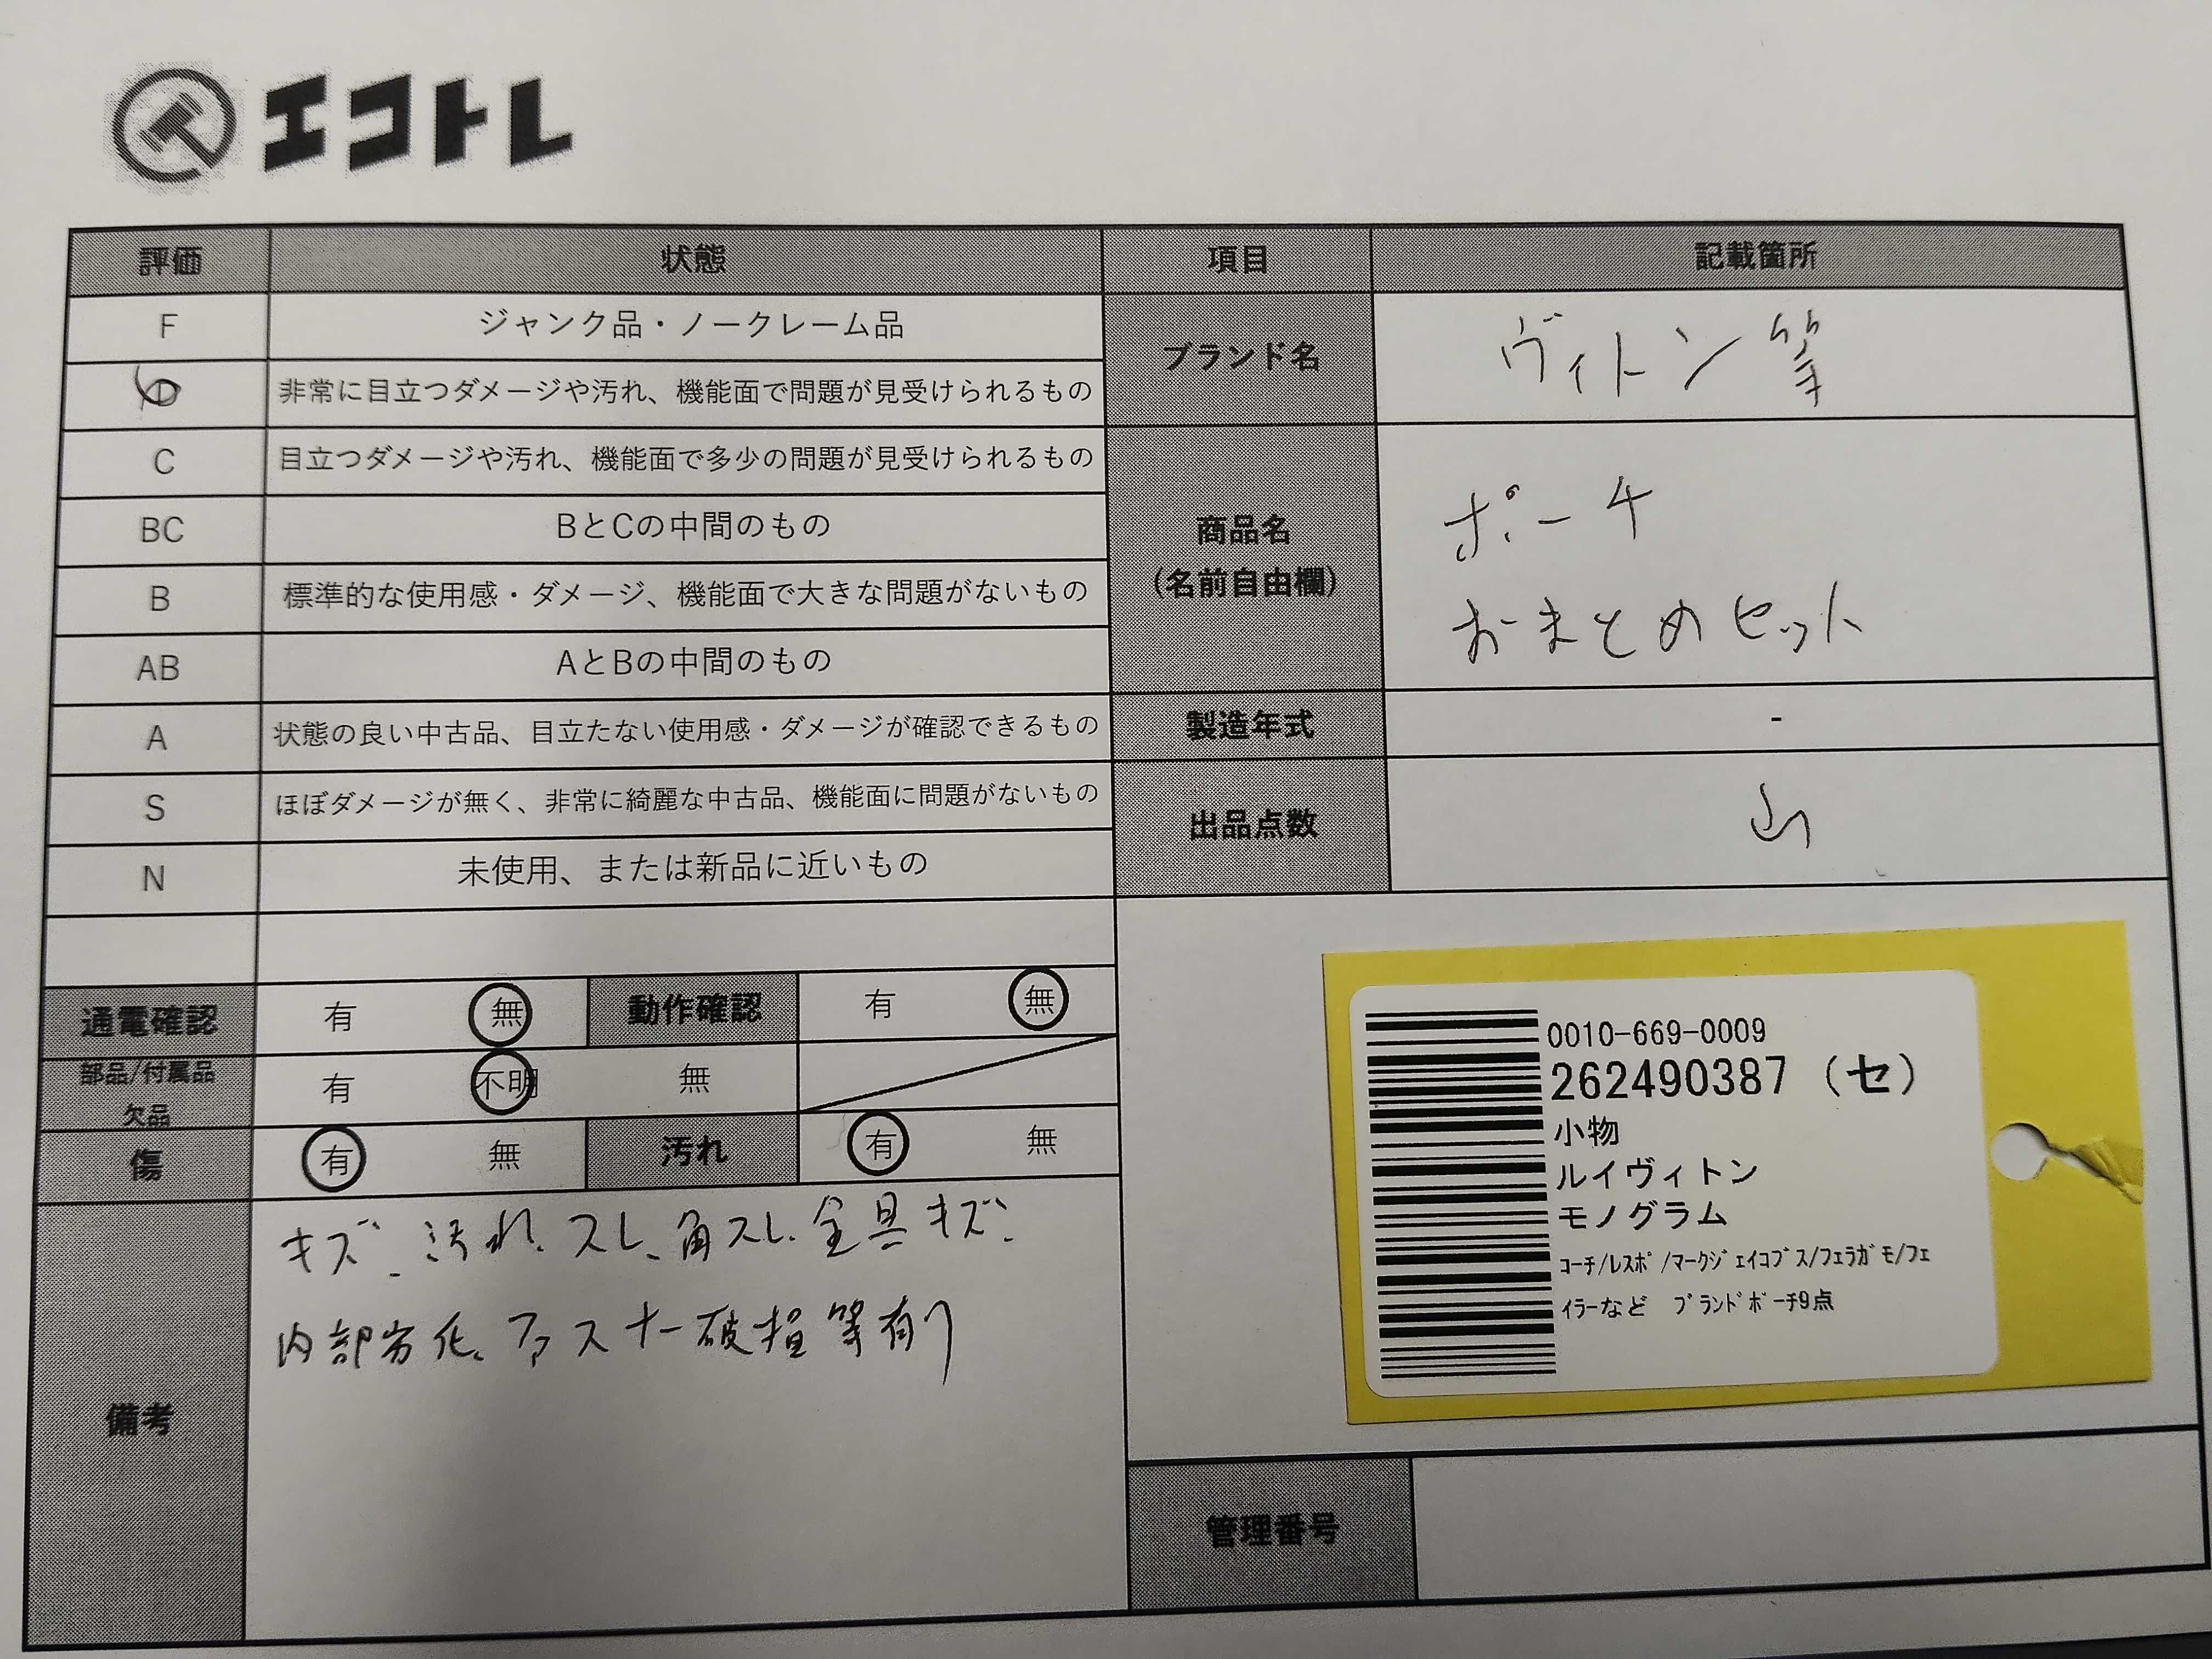 エコトレ
評価 状態 項目 記載箇所
F ジャンク品・ノークレーム品
D 非常に目立つダメージや汚れ、機能面で問題が見受けられるもの
ブランド名 ヴィトン等
C 目立つダメージや汚れ、機能面で多少の問題が見受けられるもの
BC BとCの中間のもの
商品名
(名前自由欄)
ポーチ
おまとめセット
B 標準的な使用感・ダメージ、機能面で大きな問題がないもの
AB AとBの中間のもの
A 状態の良い中古品、目立たない使用感・ダメージが確認できるもの
製造年式 -
S ほぼダメージが無く、非常に綺麗な中古品、機能面に問題がないもの
出品点数 山
N 未使用、または新品に近いもの
通電確認 有 無 動作確認 有 無
部品/付属品
欠品
有 不明 無
傷 有 無 汚れ 有 無
備考
キズ、汚れ、スレ、角スレ、金具キズ、
内部劣化、ファスナー破損等有り
0010-669-0009
262490387 (セ)
小物
ルイヴィトン
モノグラム
ｺｰﾁ/ﾚｽﾎﾟ/ﾏｰｸｼﾞｪｲｺﾌﾞｽ/ﾌｪﾗｶﾞﾓ/ﾌｪ
ｲﾗｰなど ﾌﾞﾗﾝﾄﾞﾎﾟｰﾁ9点
管理番号